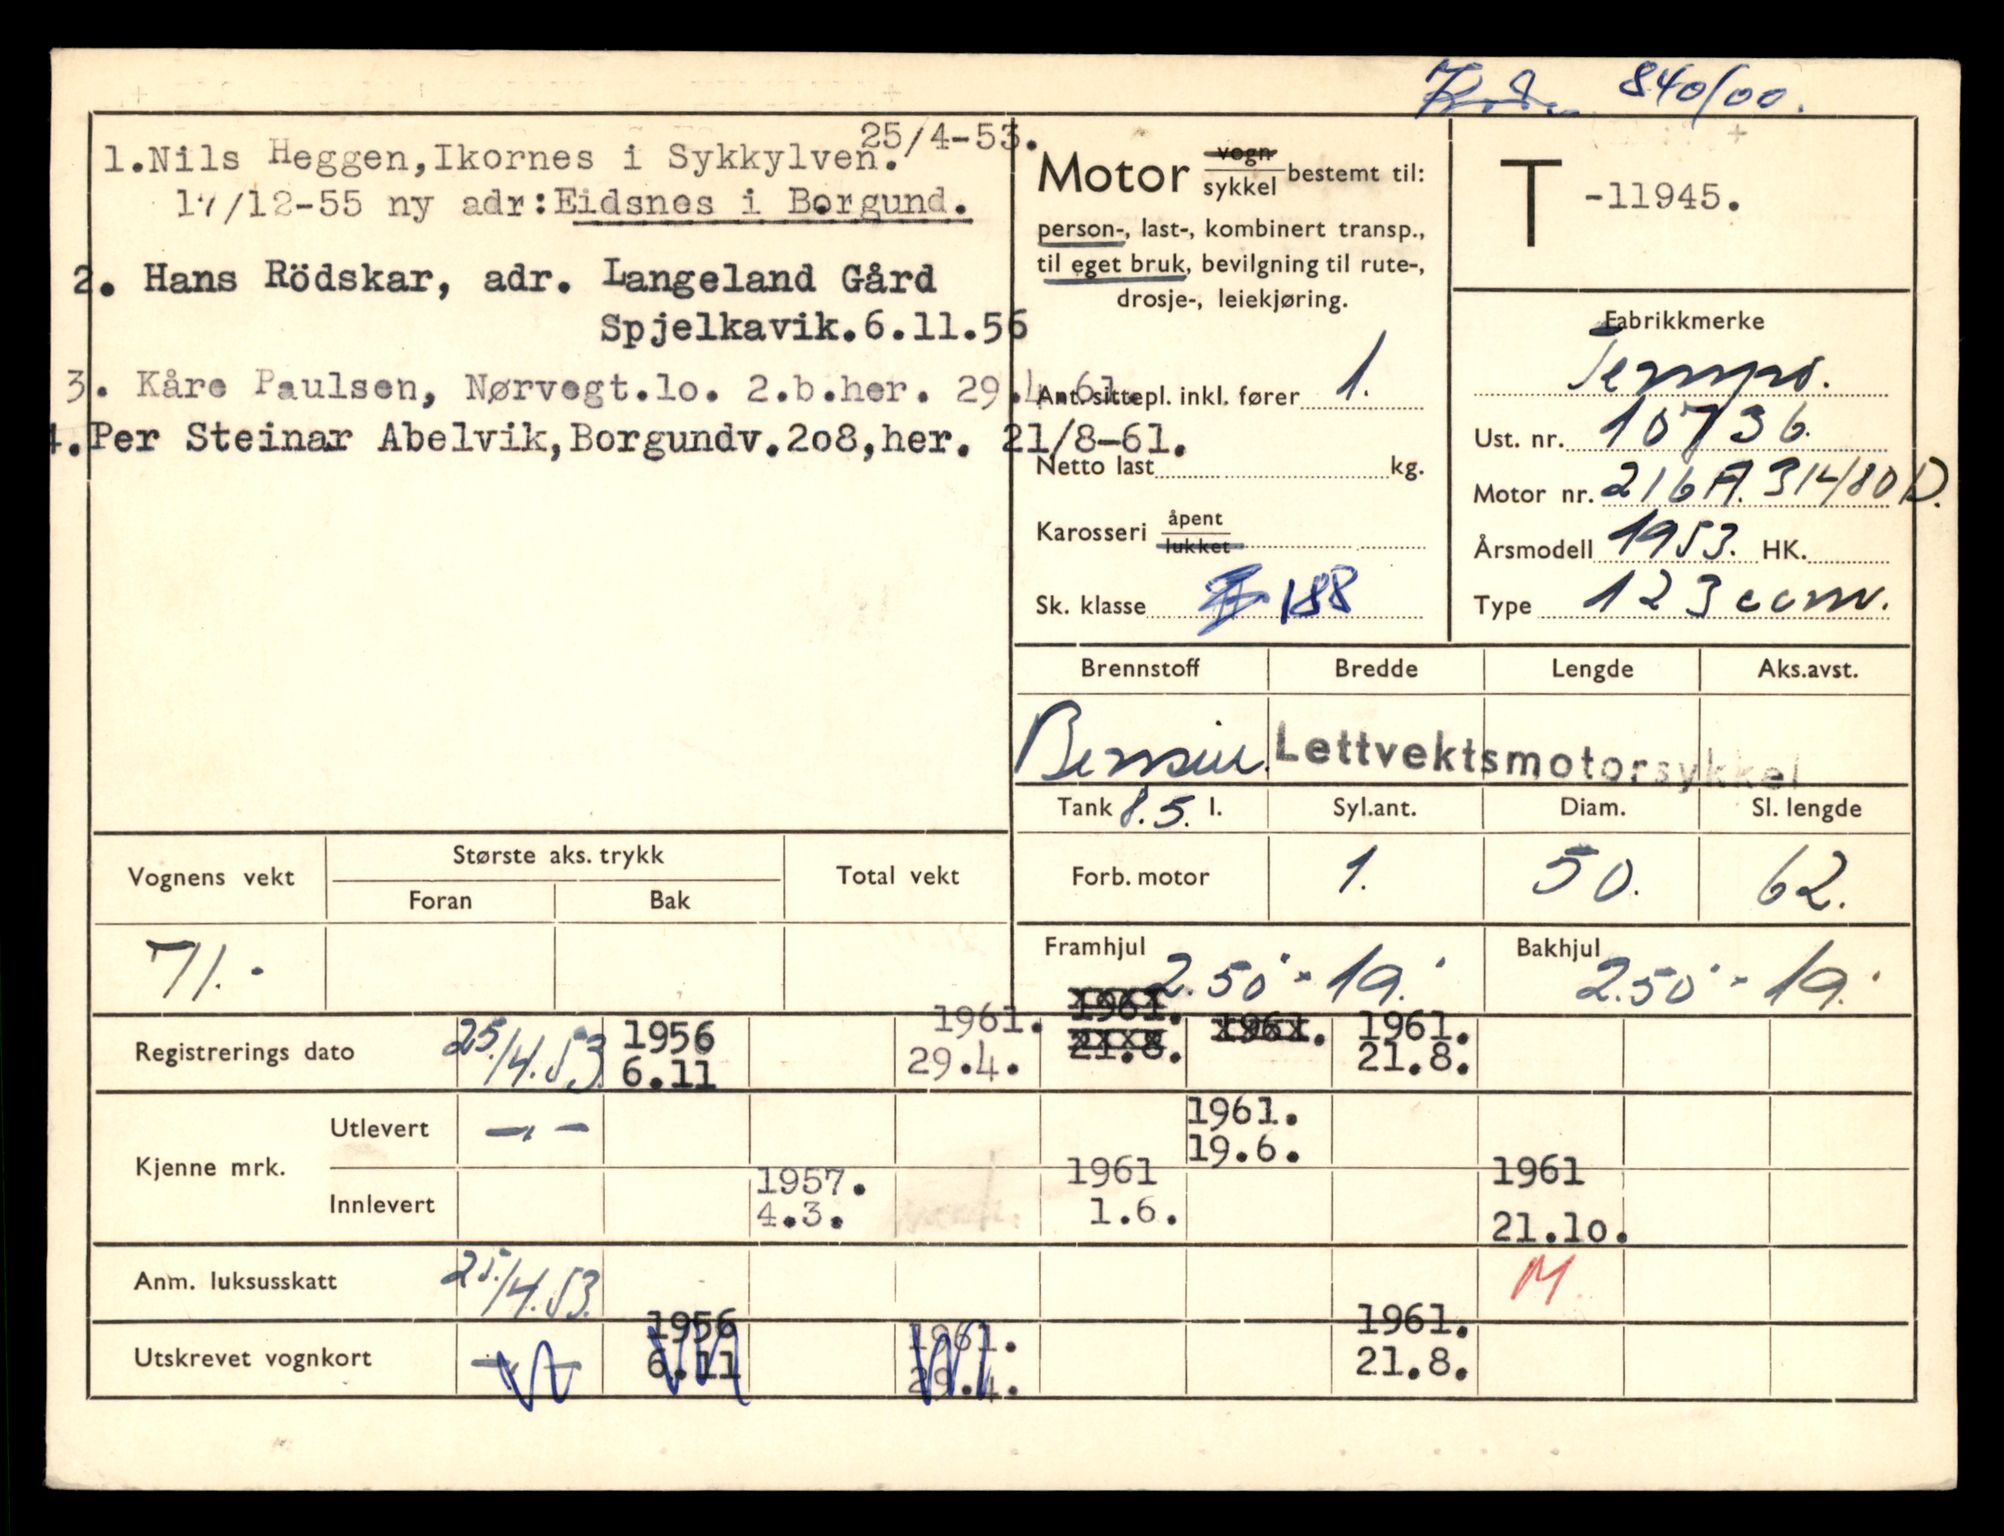 840/00.
25/4-53.
1.Nils Heggen,Ikornes i Sykkylven.
17/12-55 ny adr:Eidsnes i Borgund.
2. Hans Rödskar, adr. Langeland Gård
Spjelkavik.6.11.56
3. Kåre Paulsen, Nørvegt.lo. 2.b.her. 29.4.61.
4.Per Steinar Abelvik,Borgundv.2o8,her. 21/8-61.
Motor vogn
sykkel bestemt til:
person-, last-, kombinert transp.,
til eget bruk, bevilgning til rute-,
drosje-, leiekjøring.
Ant. sittepl. inkl. fører 1.
Netto last kg.
Karosseri åpent
lukket
Sk. klasse 188
T -11945.
Fabrikkmerke
Tempo.
Ust. nr. 10736.
Motor nr. 216A.314180D.
Årsmodell 1953. HK.
Type 123 ccm.
Brennstoff Bredde Lengde Aks.avst.
Bensin. Lettvektsmotorsykkel
Tank 8.5. l. Syl.ant. Diam. Sl. lengde
Forb. motor 1. 50. 62.
Framhjul 2.50" - 19." Bakhjul 2.50" - 19."
Vognens vekt Største aks. trykk Total vekt
Foran Bak
71.-
Registrerings dato 25/4.53. 1956 1961. 1961. 1961. 1961.
6.11 29.4. 21.8. 21.8.
Kjenne mrk. Utlevert -"- 1961.
19.6.
Innlevert 1957. 1961 1961
4.3. 1.6. 21.lo.
Anm. luksusskatt 25/4.53. M.
Utskrevet vognkort -"- 1956 1961. 1961.
6.11 29.4. 21.8.